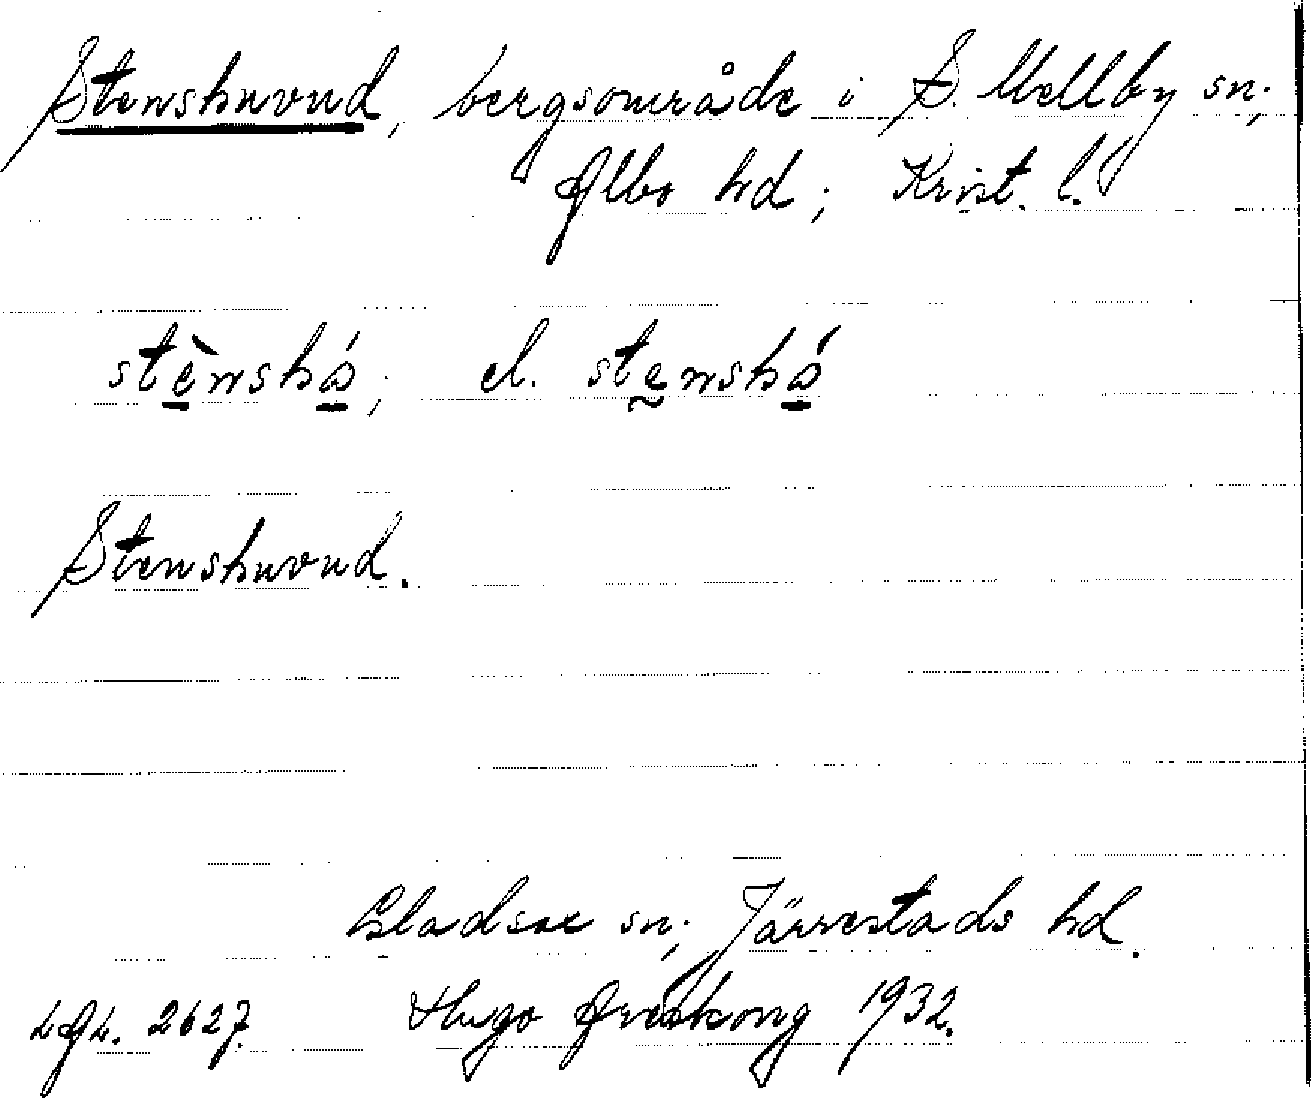 Stenshuvud, bergsområde i S. Mellby sn;
Albo hd; Krist. l.
stènshó; el. stenshó
Stenshuvud.
Gladsax sn; Järrestads hd.
2627. Hugo 1932.